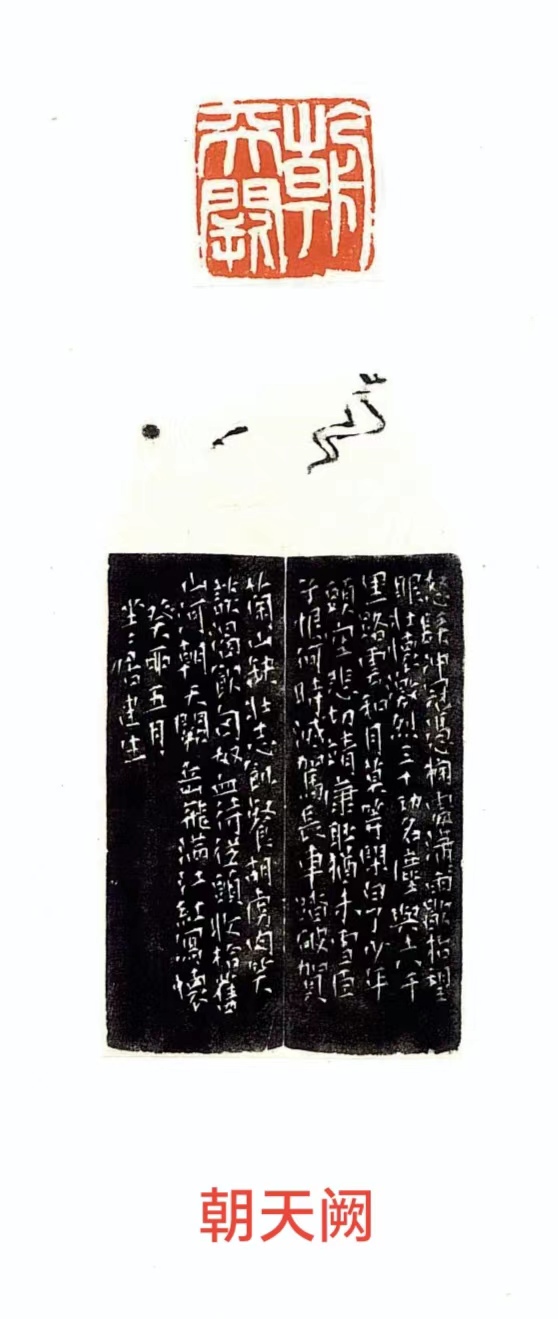 朝天闕
怒髮冲冠憑欄處瀟雨歇抬望
眼壯懷激烈三十功名塵與土八千
里路雲和月莫等閑白了少年
頭空悲切靖康恥猶未雪臣
子恨何時滅駕長車踏破賀
蘭山缺壯志飢餐胡虜肉笑
談渴飲匈奴血待從頭收拾舊
山河朝天闕 岳飛滿江紅寫懷
癸酉五月
建生
朝天阙